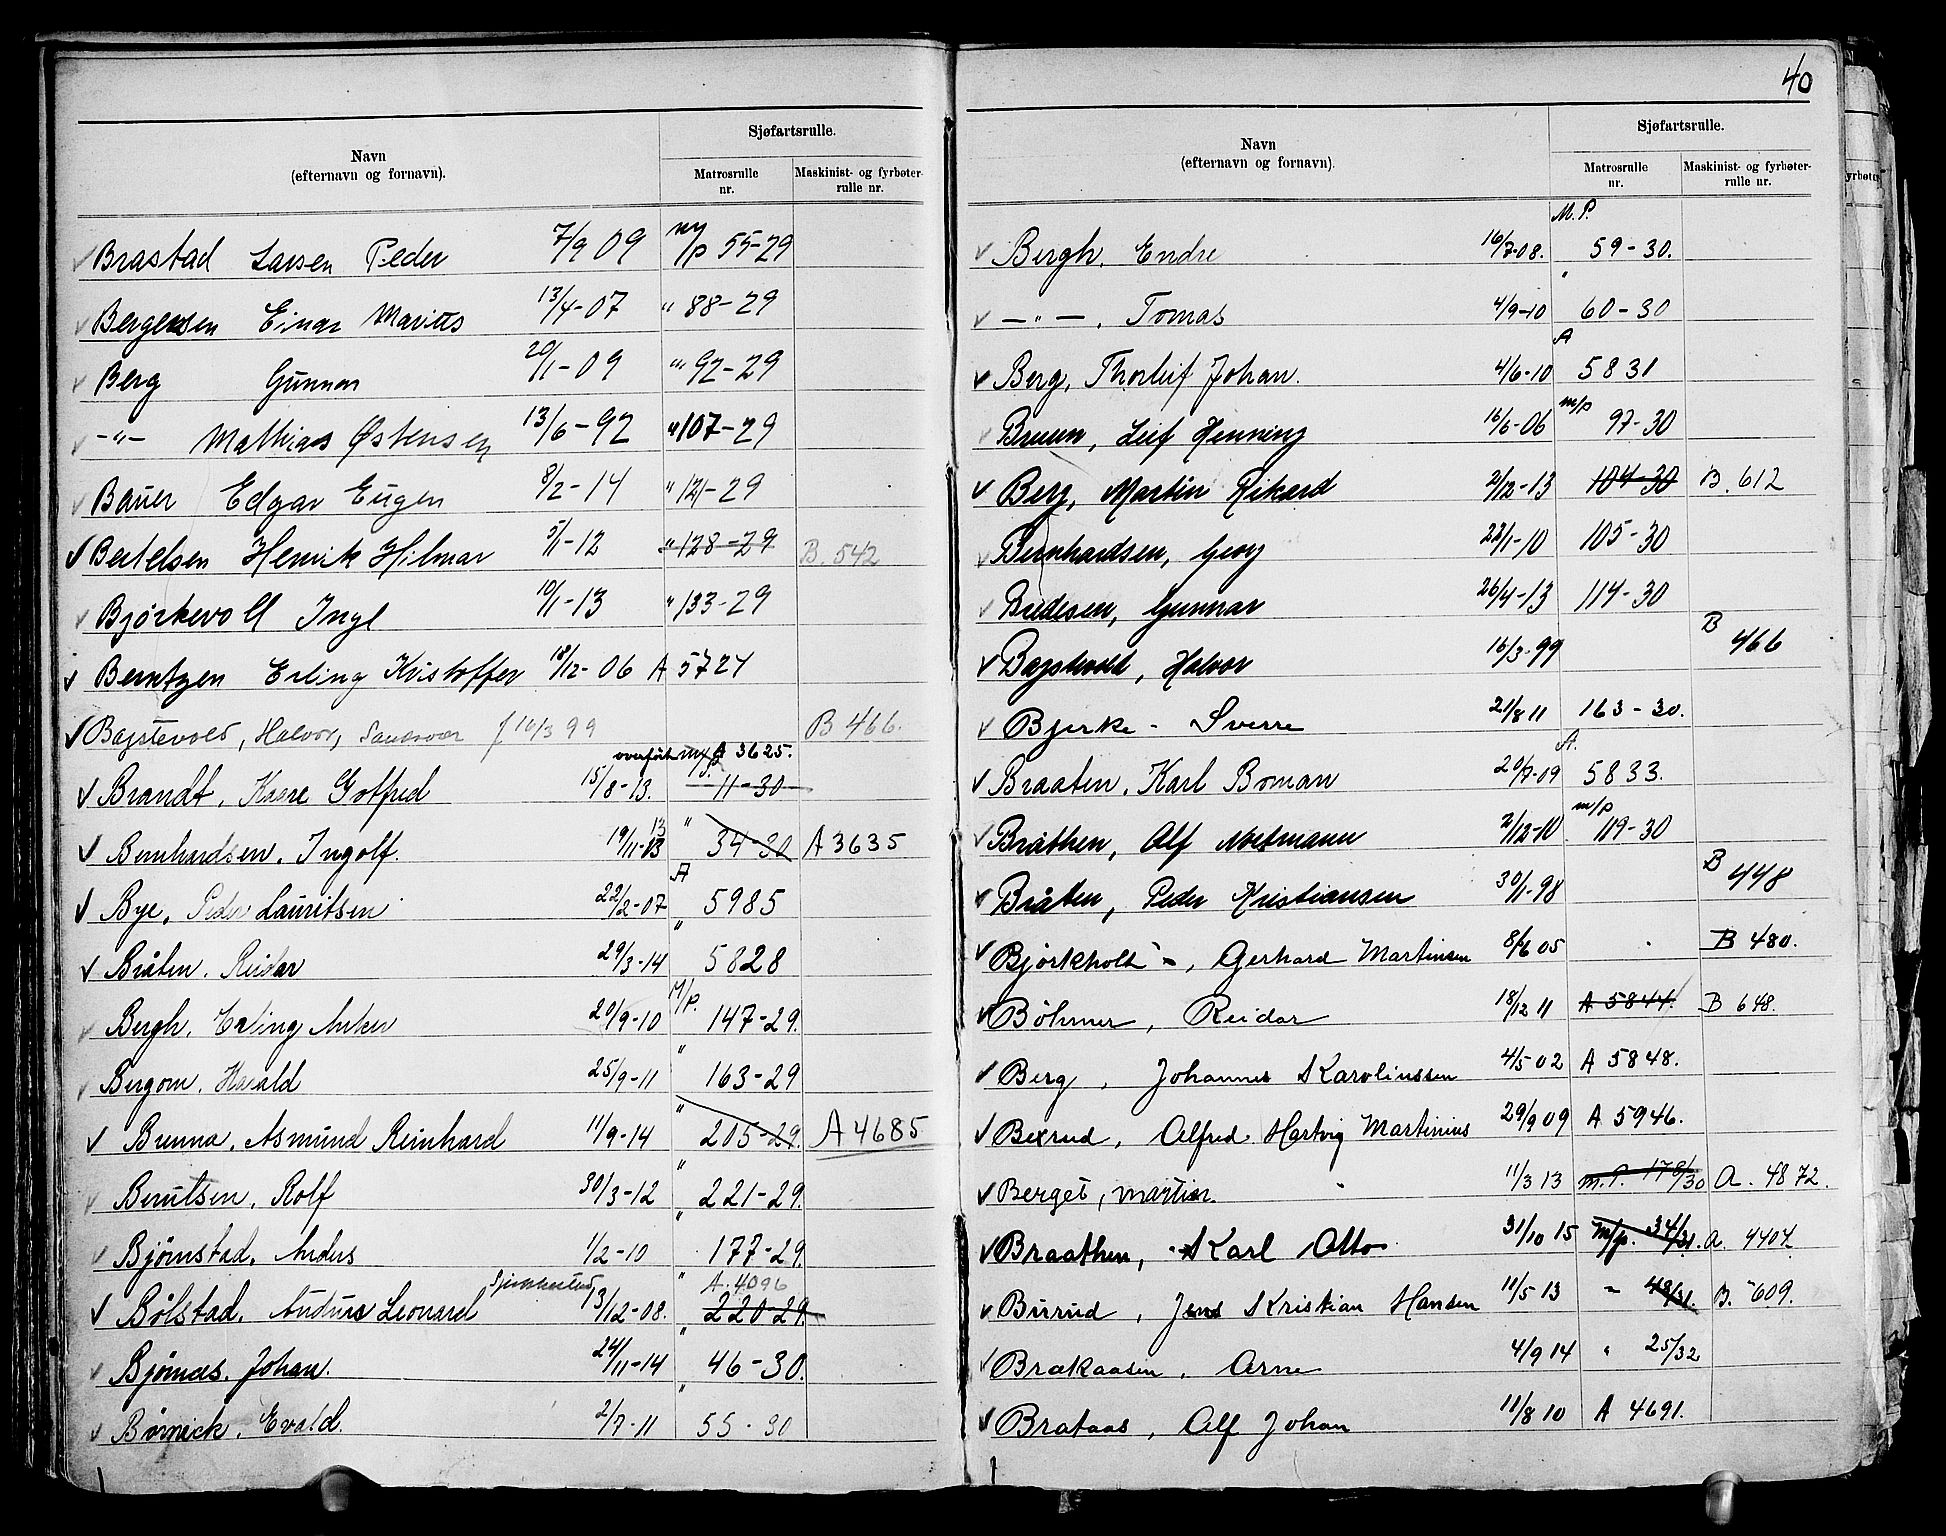 Navn
(efternavn og fornavn).
Sjøfartsrulle.
Matrosrulle
nr.
Maskinist- og fyrbøter-
rulle nr.
✓ Brastad Larsen Peder 7/9 09 ny M/P 55-29
✓ Bergersen Einar Marius 13/4-07 " 88-29
✓ Berg Gunnar 20/1-09 " 92-29
✓ -"- Mathias Østensen 13/6-92 " 107-29
✓ Bauer Edgar Eugen 8/2-14 " 121-29
✓ Bertelsen Henrik Hilmar 5/11-12 " 128-29 B. 542
✓ Bjørkevoll Ingl 10/1-13 " 133-29
✓ Berntzen Erling Kristoffer 18/12-06 A 5724
✓ Bagstevold, Halvor, Sandsvær f 16/3 99 B 466.
overført A 3625.
✓ Brandt, Kaare Gotfred 15/8-13. 11-30
✓ Bernhardsen, Ingolf. 19/11-13 " 34-30 A 3635
✓ Bye, Peder Lauritsen 22/2-07 A 5985
✓ Bråten, Reidar 29/3-14 " 5828
✓ Bergh, Erling Anker 20/9-10 M/P. 147-29.
✓ Bergom, Harald 25/9-11 " 163-29
✓ Brenna, Asmund Reinhard 11/9-14 " 205-29. A 4685
✓ Berntsen, Rolf 30/3-12 " 221-29.
✓ Bjørnstad, Anders 1/2-10 " 177-29.
A. 4096
✓ Bølstad, Leonard 13/12-08. " 220-29.
✓ Bjørnæs, Johan. 24/11-14 " 46-30.
✓ Børnick, Evald. 2/7-11 " 55-30
40
Navn
(efternavn og fornavn).
Sjøfartsrulle.
Matrosrulle
nr.
Maskinist- og fyrbøter-
rulle nr.
yrbøter
✓ Bergh, Endre 16/7-08. M.P. 59-30.
✓ -"-, Tomas 4/9-10 " 60-30
✓ Berg, Thorleif Johan. 4/6-10 A 5831
✓ Bruun, Leif Henning 16/6-06 m/p 97-30
✓ Berg, Martin Rikard 2/12-13 104-30 B. 612
✓ Bernhardsen, Georg 22/1-10 105-30
✓ Bredesen, Gunnar 26/4-13 114-30
✓ Bagstevold, Halvor 16/3-99 B 466
✓ Bjerke - Sverre 21/8 11 163-30.
✓ Braaten, Karl Boman 20/7-09 A. 5833.
✓ Bråthen, Alf 2/12-10 m/p 119-30
✓ Bråten, Peder Kristiansen 30/1-98 B 448
✓ Bjørkholt -, Gerhard Martinsen 8/6 05 B 480.
✓ Böhmer, Reidar 18/12 11 A 5844. B 648.
✓ Berg, Johannes Karolinssen 4/5 02 A 5848.
✓ Bexrud, Alfred Hartvig Martinius 29/9 09 A 5946.
✓ Berget, Martin. 11/3 13 M.P. 178/30 A. 4872.
✓ Braathen, Karl Otto 31/10 15 M/p. 34/31. A. 4407.
✓ Burud, Jens Kristian Hansen 11/5 13 " 49/31. B. 609.
✓ Brækaasen, Arne 4/9 14 " 25/32
✓ Brataas, Alf Johan 11/8 10 A 4691.